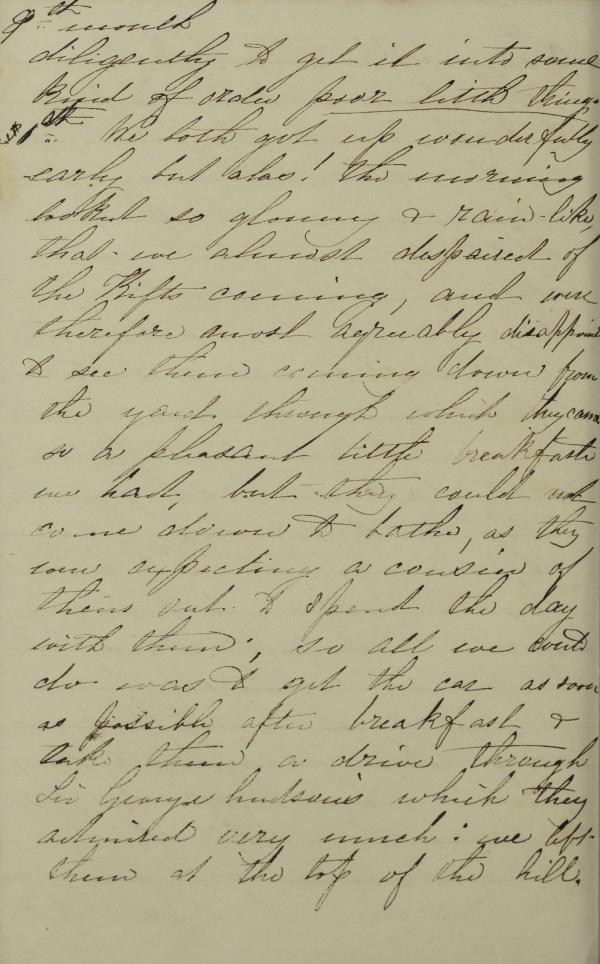 9th month
diligently to get it into some
kind of order poor little things.
1st. We both got up wonderfully
early but alas! the morning
looked so gloomy & rain-like,
that we almost despaired of
the Kifts coming, and were
therefore most agreeably disappoint
to see them coming down from
the yard through which they came
so a pleasant little breakfast
we had, but they could not
come down to bathe, as they
were expecting a cousin of
theirs out to spend the day
with them; so all we could
do was to get the car as soon
as possible after breakfast &
take them a drive through
Sir George hudson's which they
admired very much: we left
them at the top of the hill.